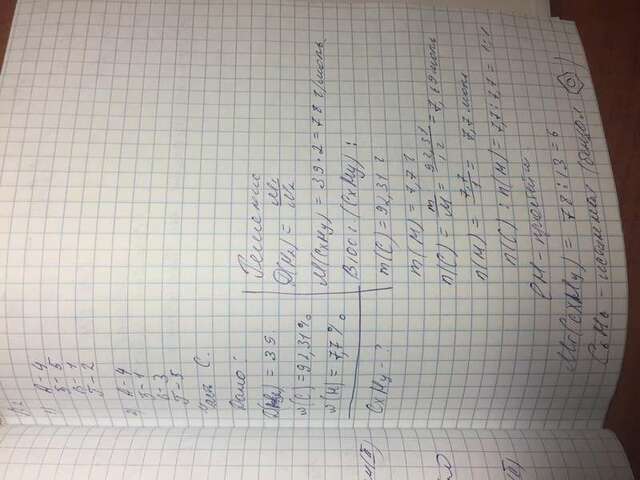 1) А-4
Б-5
В-1
Г-2
2) А-4
Б-1
В-3
Г-5
Часть С.
Дано:
D(H₂) = 39
W(C) = 92,31%
W(H) = 7,7%
CxHy - ?
Решение
D(H₂) = M₁/M₂
M(CxHy) = 39·2 = 78 г/моль
В 100 г (CxHy):
m(C) = 92,31 г
m(H) = 7,7 г
n(C) = m/M = 92,31/12 = 7,69 моль
n(H) = 7,7/1 = 7,7 моль
n(C) : n(H) = 7,7 : 7,7 = 1:1
CH -
Mr(CxHy) = 78 : 13 = 6
C₆H₆ - (бензол)